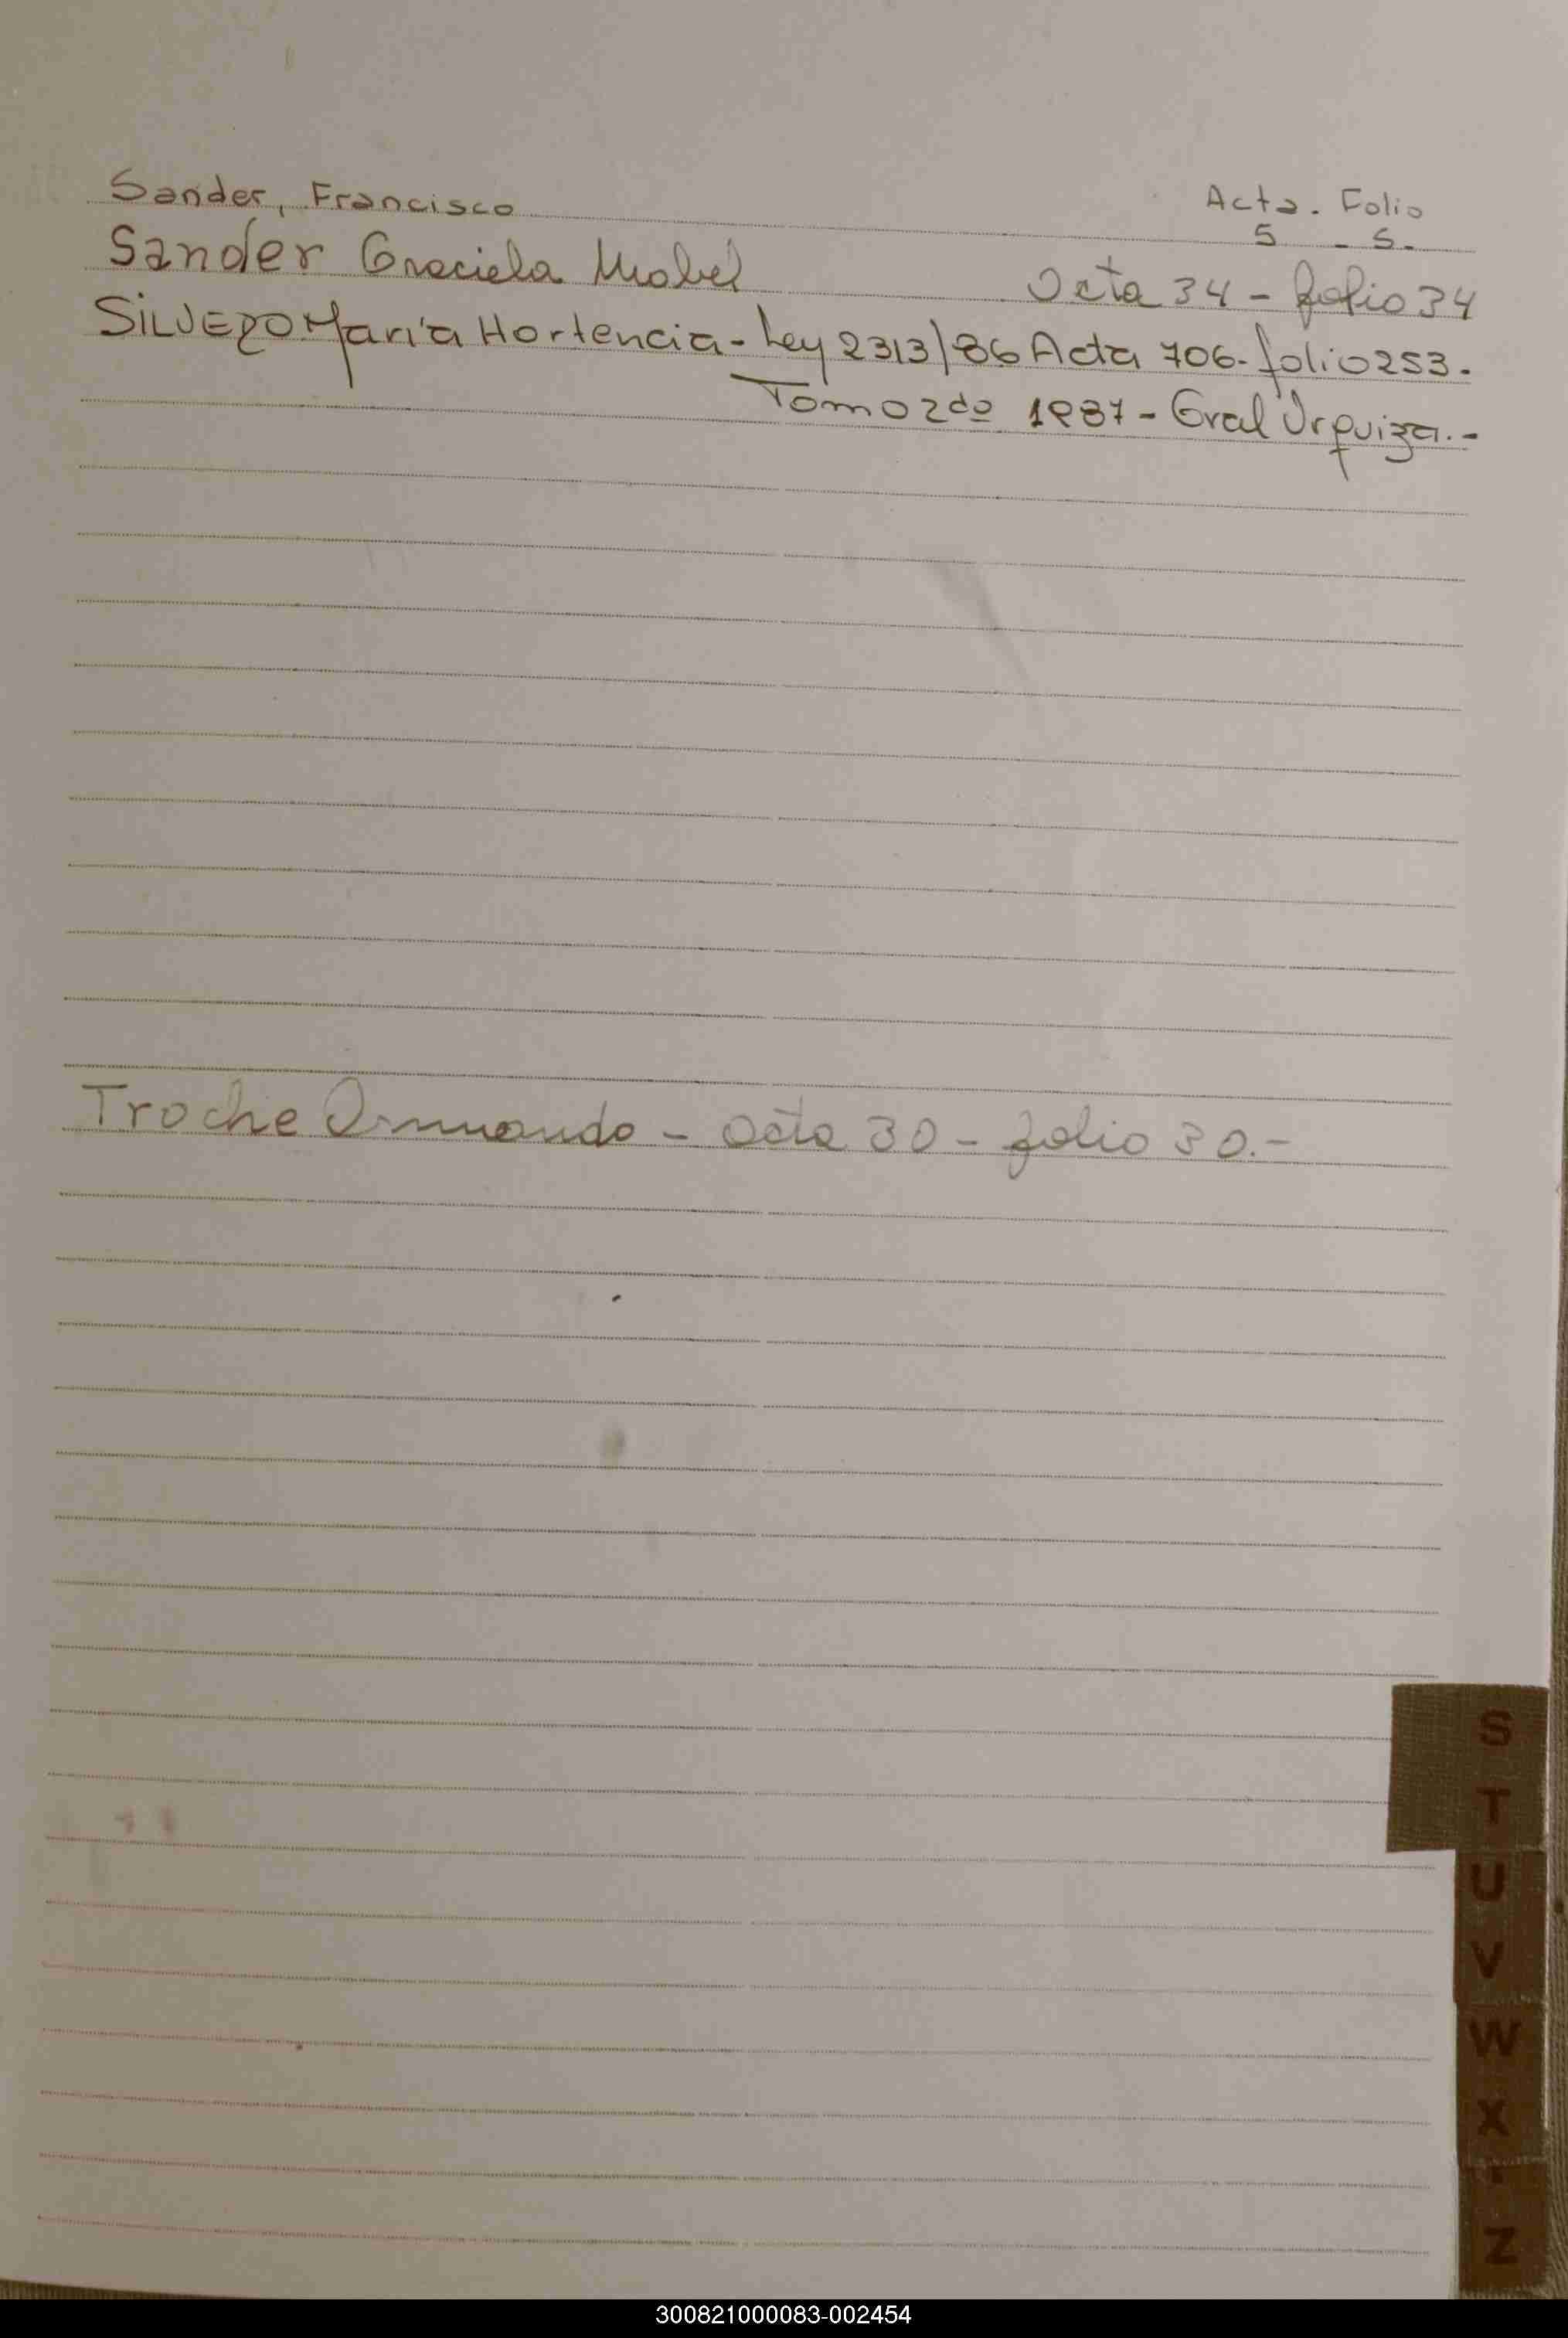 Acta. Folio
Sander, Francisco 5 - 5.
Sander Graciela Mabel Acta 34 - folio 34
SILVERO María Hortencia - Ley 2313/86 Acta 706 - folio 253.
Tomo 2do 1987 - Gral Urquiza. -
Troche Armando - Acta 30 - folio 30. -
S
T
U
V
W
X
Z
300821000083-002454